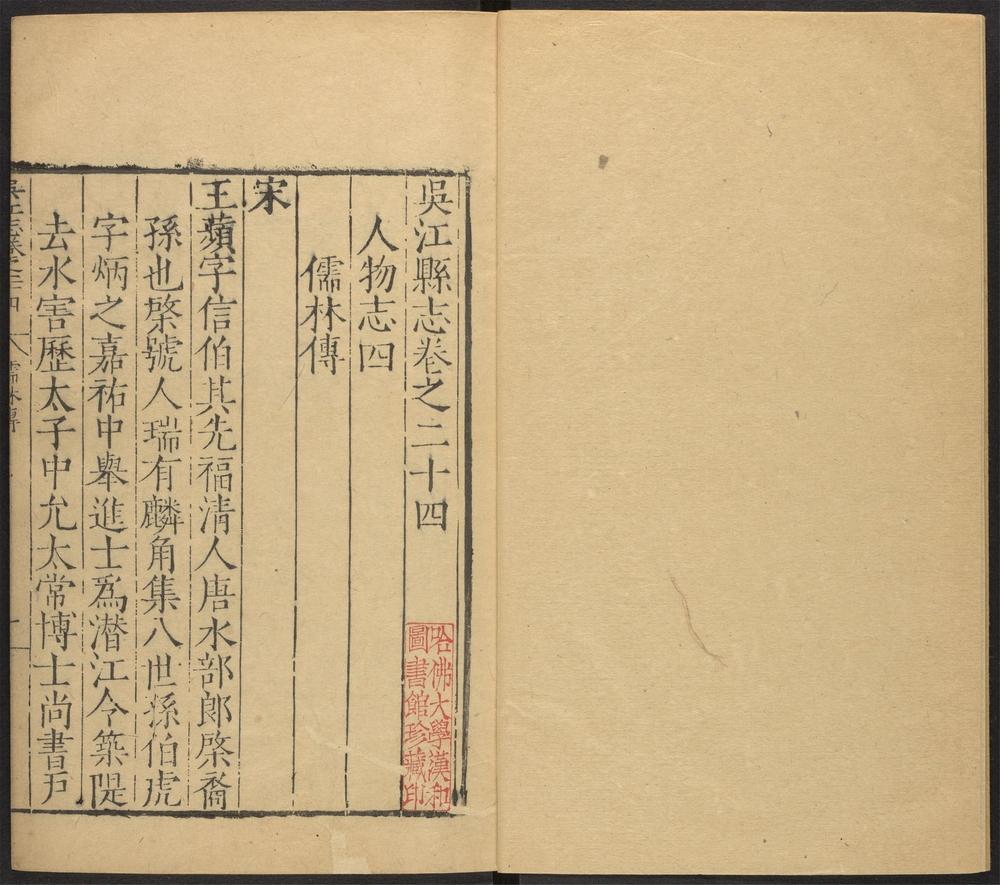 吳江縣志卷之二十四
人物志四
儒林傳
宋
王蘋字信伯其先福清人唐水部郎棨裔
孫也棨號人瑞有麟角集八世孫伯虎
字炳之嘉祐中舉進士爲潜江令築隄
去水害歷太子中允太常博士尚書戸
儒林傳
哈佛大學漢和
圖書館珍藏印